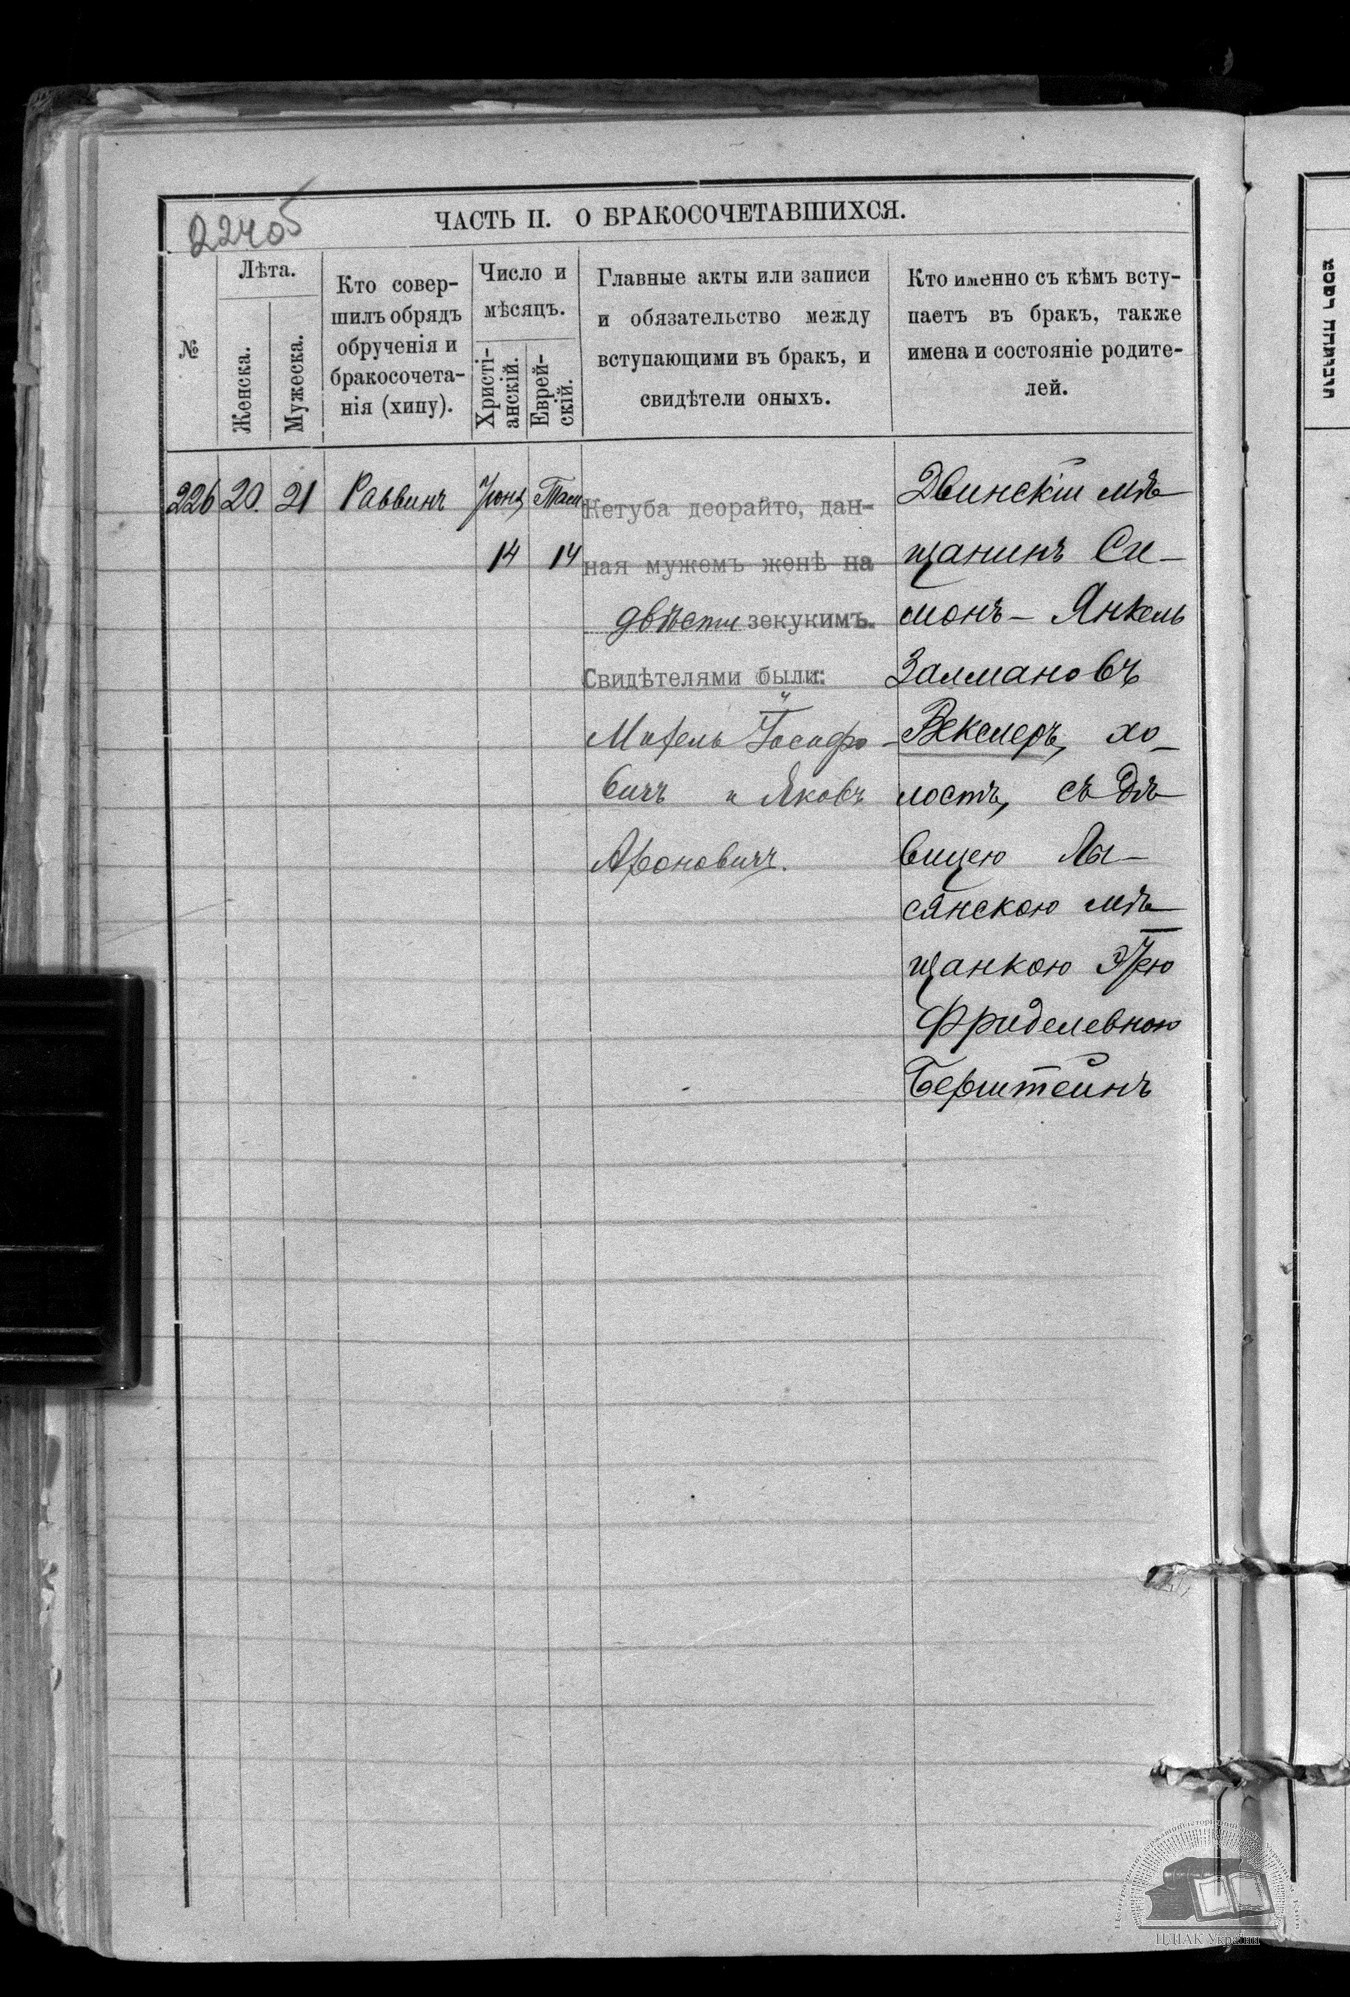 22405
ЧАСТЬ II. О БРАКОСОЧЕТАВШИХСЯ.
№
Лѣта.
Женска.
Мужеска.
Кто совер-
шилъ обрядъ
обрученія и
бракосочета-
нія (хипу).
Число и
мѣсяцъ.
Христі-
анскій.
Еврей-
скій.
Главные акты или записи
и обязательство между
вступающими въ бракъ, и
свидѣтели оныхъ.
Кто именно съ кѣмъ всту-
паетъ въ бракъ, также
имена и состояніе родите-
лей.
226
20.
21
Раввинъ
Іюня
14
Там
14
Кетуба деорайто, дан-
ная мужемъ женѣ на
двѣсти зекукимъ.
Свидѣтелями были:
Михель Іосифо-
вичъ и Яковъ
Ароновичъ.
Двинскій мѣ-
щанинъ Си-
монъ-Янкель
Залмановъ
Векслеръ, хо-
лостъ, съ дѣ-
вицею Лы-
сянскою мѣ-
щанкою
Фриделевною
Берштейнъ
ЦДІАК України